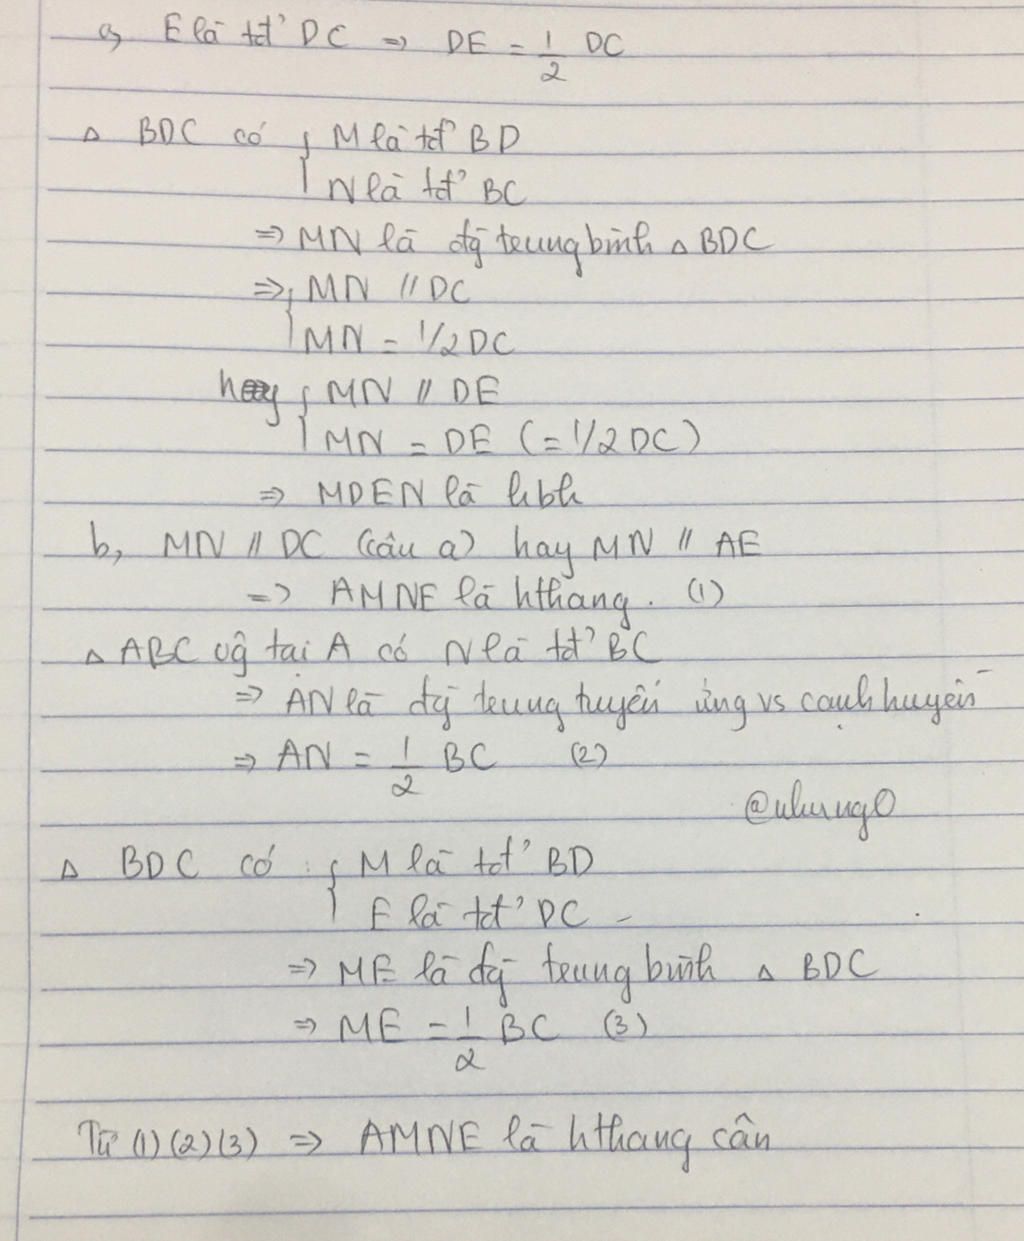 a, E là tđ' DC => DE = 1/2 DC
Δ BDC có { M là tđ' BD
N là tđ' BC
=> MN là đg trung bình Δ BDC
=> { MN // DC
MN = 1/2 DC
hay { MN // DE
MN = DE (= 1/2 DC)
=> MDEN là hbh
b, MN // DC (câu a) hay MN // AE
=> AMNE là hthang. (1)
Δ ABC vg tại A có N là tđ' BC
=> AN là đg trung tuyến ứng vs cạnh huyền
=> AN = 1/2 BC (2)
Δ BDC có : { M là tđ' BD
E là tđ' DC
=> ME là đg trung bình Δ BDC
=> ME = 1/2 BC (3)
Từ (1) (2) (3) => AMNE là hthang cân